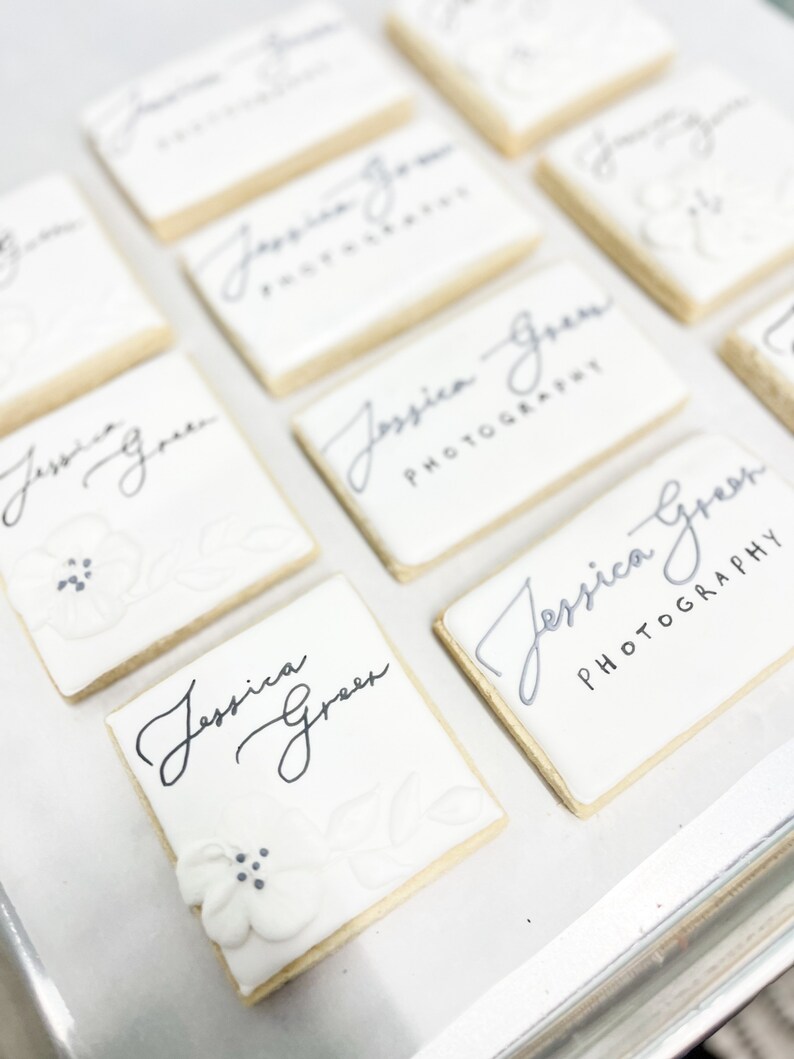 Jessica Green
PHOTOGRAPHY
Jessica Green
Jessica Green
PHOTOGRAPHY
Jessica Green
PHOTOGRAPHY
Jessica
Green
Jessica Green
PHOTOGRAPHY
Jessica
Green